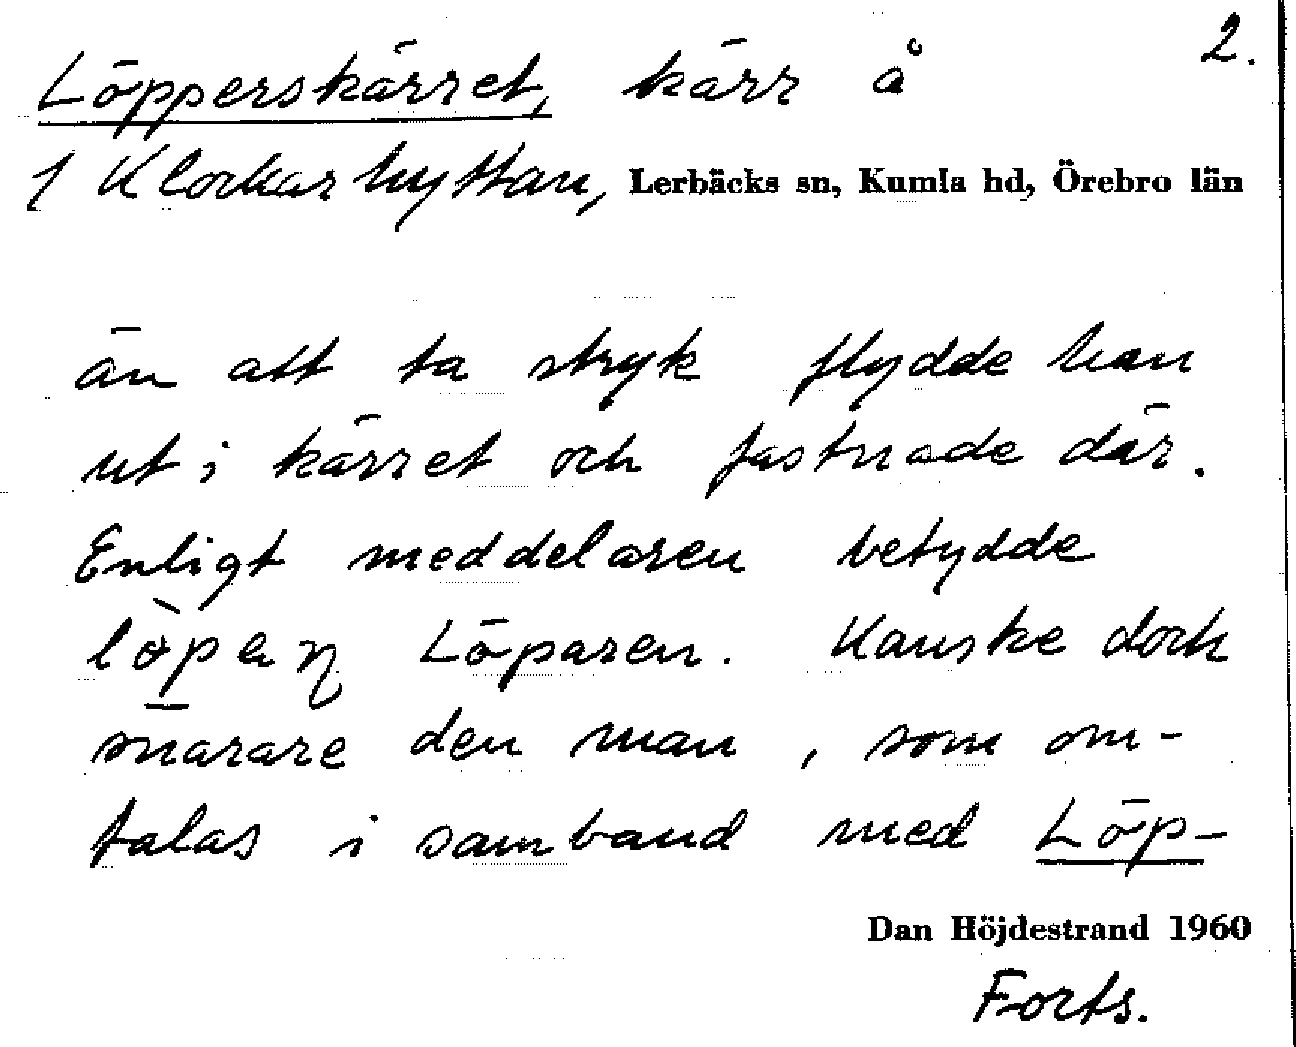 2.
Löpperskärret, kärr å
1 Klockarhyttan, Lerbäcks sn, Kumla hd, Örebro län
än att ta stryk flydde han
ut i kärret och fastnade där.
Enligt meddelaren betydde
löpen Löparen. Kanske dock
snarare den man, som om-
talas i samband med Löp-
Dan Höjdestrand 1960
Forts.